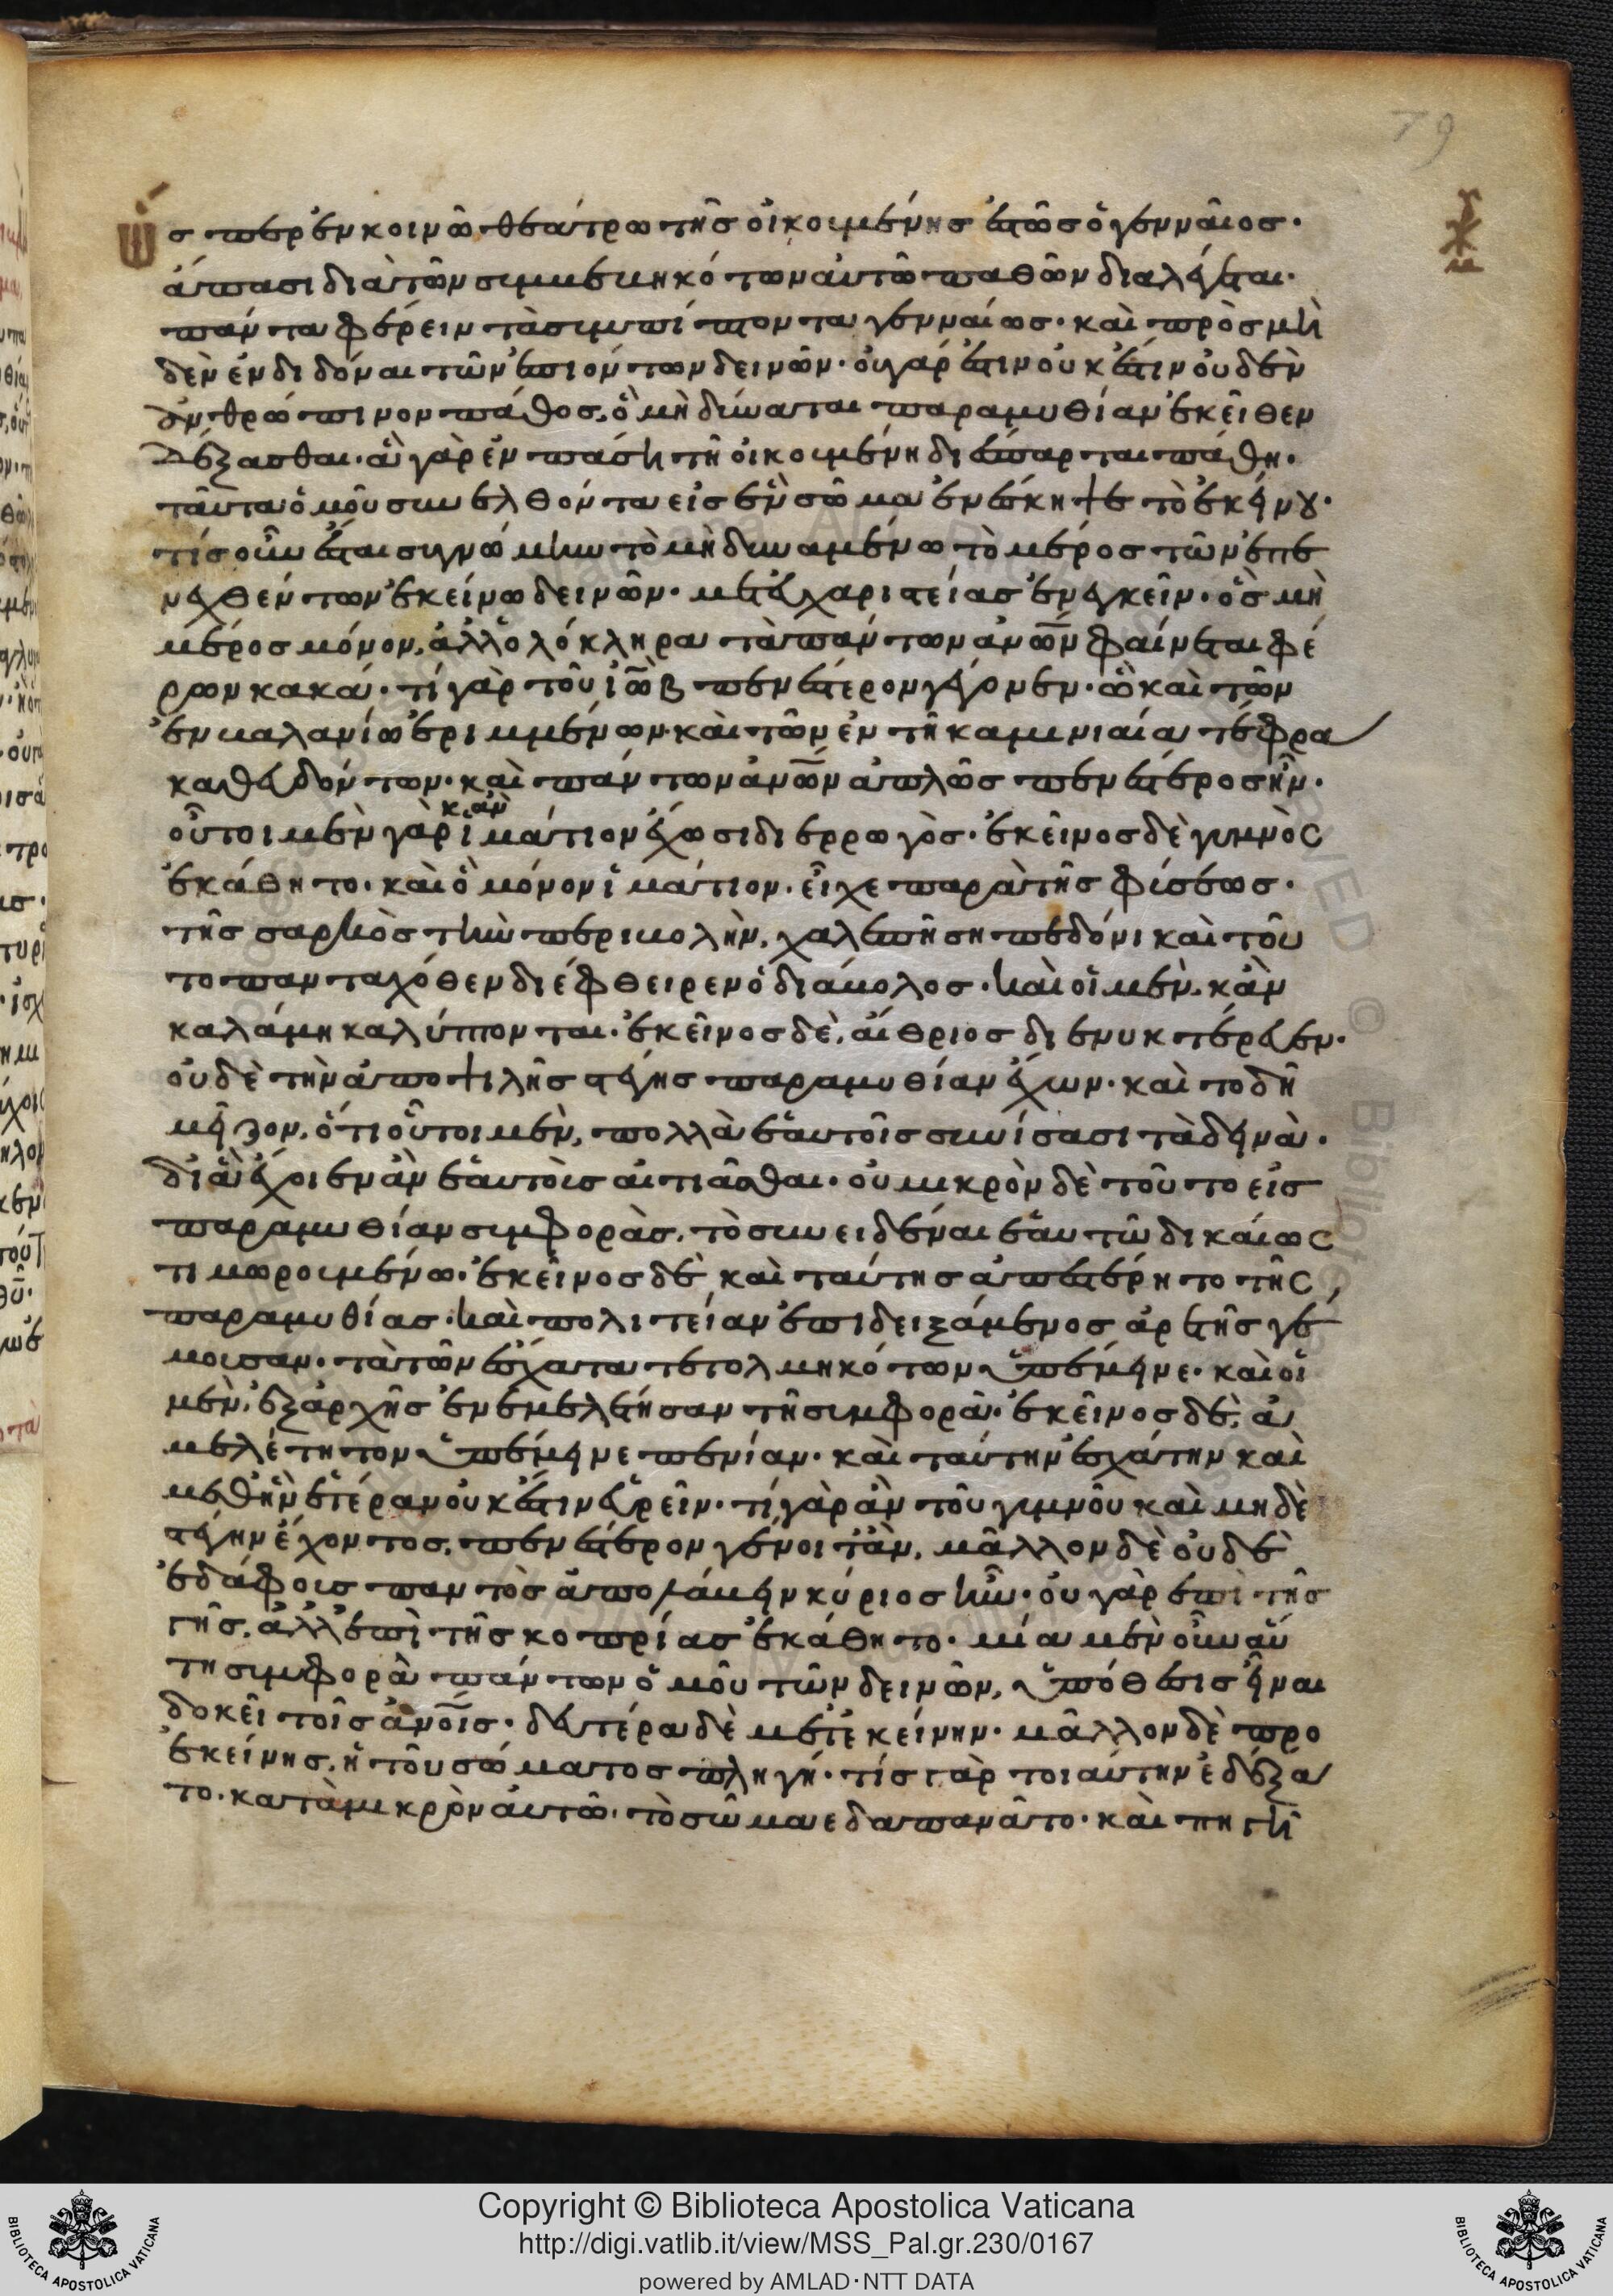 79
Ὥσπερ ἐν κοινῶ θεάτρω τῆς οἰκουμένης ἑστὼς ὁ γενναῖος·
ἅπασι διὰ τῶν συμβεβηκότων αὐτῶ παθῶν διαλέγεται·
πάντα φέρειν τὰ συμπίπτοντα γενναίως· καὶ πρὸς μη
δὲν ἐνδιδόναι τῶν ἐπιόντων δεινῶν· οὐ γάρ ἐστιν οὐκ ἔστιν οὐδὲν
ἀνθρώπινον πάθος, ὃ μὴ δύναται παραμυθίαν ἐκεῖθεν
δέξασθαι· ἃ γὰρ ἐν πάση τῆ οἰκουμένη διέσπαρται πάθη·
ταῦτα ὁμοῦ συνελθόντα εἰς ἓν σῶμα ἐνέσκηψε τὸ ἐκείνου·
τίς οὖν ἔσται συγνώμη τὸ μὴ δυναμένω τὸ μέρος τῶν ἐπε
νεχθέντων ἐκείνω δεινῶν· μετ εὐχαριστείας ἐνεγκεῖν· ὃς μὴ
μέρος μόνον, ἀλλ ὁλόκληρα τὰ πάντων ἀνῶν φαίνεται φέ
ρων κακά· τί γὰρ τοῦ ἰὼβ πενέστερον γέγονεν· ὃ καὶ τῶν
ἐν βαλανίω ἐριμμένων· καὶ τῶν ἐν τῆ καμινιαία τέφρα
καθευδόντων· καὶ πάντων ἀνῶν ἁπλῶς πενέστερος ἦν·
οὗτοι μὲν γὰρ κἂν ἱμάτιον ἔχωσι διερρωγὸς· ἐκεῖνος δὲ γυμνὸς
ἐκάθητο· καὶ ὃ μόνον ἱμάτιον· εἶχε παρὰ τῆς φύσεως·
τῆς σαρκὸς τὴν περιβολὴν, χαλεπῆ σηπεδόνι καὶ τοῦ
το πανταχόθεν διέφθειρεν ὁ διάβολος· καὶ οἱ μὲν, κἂν
καλάμη καλύπτονται· ἐκεῖνος δὲ, αἴθριος διενυκτέρευεν·
οὐδὲ τὴν ἀπὸ ψιλῆς στέγης παραμυθίαν ἔχων· καὶ το δὴ
μεῖζον, ὅτι οὗτοι μὲν, πολλὰ ἑαυτοῖς συνίσασι τὰ δεινὰ·
δι ἃ ἔχοιεν ἂν ἑαυτοὺς αἰτιᾶσθαι· οὐ μικρὸν δὲ τοῦτο εἰς
παραμυθίαν συμφορὰς, τὸ συνειδέναι ἑαυτῶ δικαίως
τιμωρουμένω· ἐκεῖνος δὲ καὶ ταύτης ἀπεστέρητο τῆς
παραμυθίας· καὶ πολιτείαν ἐπιδειξάμενος ἀρετῆς γέ
μουσαν· τὰ τῶν ἔσχατα τετολμηκότων ὑπέμεινε· καὶ οἱ
μὲν, ἐξ ἀρχῆς ἐνεμελετήσαν τῆ συμφορᾶ· ἐκεῖνος δὲ, ἀ
μελέτητον ὑπέμεινε πενίαν· καὶ ταύτην ἐσχάτην καὶ
μεθ ἣν ἑτέραν οὐκ ἔστιν εὑρεῖν· τί γὰρ ἂν τοῦ γυμνοῦ καὶ μηδὲ
στέγην ἔχοντος, πενέστερον γένοιτ ἂν, μᾶλλον δὲ οὐδὲ
ἐδάφους παντὸς ἀπολαύειν κύριος ἦν· οὐ γὰρ ἐπὶ τῆς
γῆς, ἀλλ ἐπὶ τῆς κοπρίας ἐκάθητο· μία μὲν οὖν αὕ
τη συμφορὰ πάντων ὁμοῦ τῶν δεινῶν, ὑπόθεσις εἶναι
δοκεῖ τοῖς ἀνοῖς· δευτέρα δὲ μετ ἐκείνην· μᾶλλον δὲ προ
ἐκείνης, ἡ τοῦ σώματος πληγή· τίς γὰρ τοιαύτην ἐδέξα
το· κατὰ μικρὸν αὐτῶ· τὸ σῶμα εδαπανᾶτο· καὶ πηγὴ
Copyright © Biblioteca Apostolica Vaticana
http://digi.vatlib.it/view/MSS_Pal.gr.230/0167
powered by AMLAD·NTT DATA
BIBLIOTECA APOSTOLICA VATICANA
BIBLIOTECA APOSTOLICA VATICANA